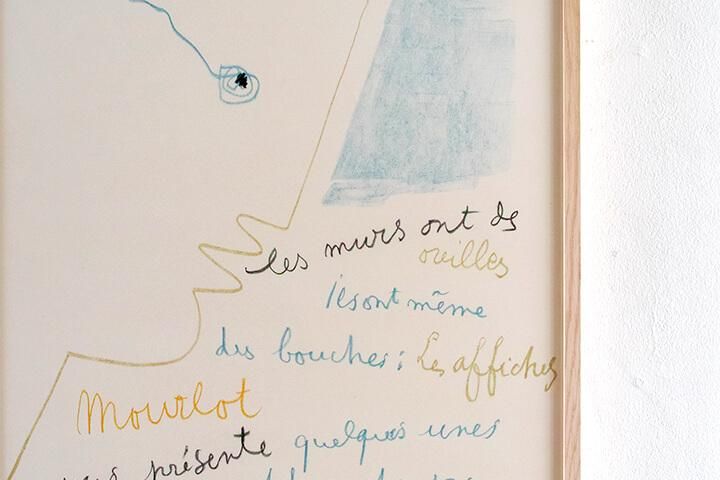 les murs ont des
oreilles
ils ont même
des bouches : Les affiches
Mourlot
présente quelques unes